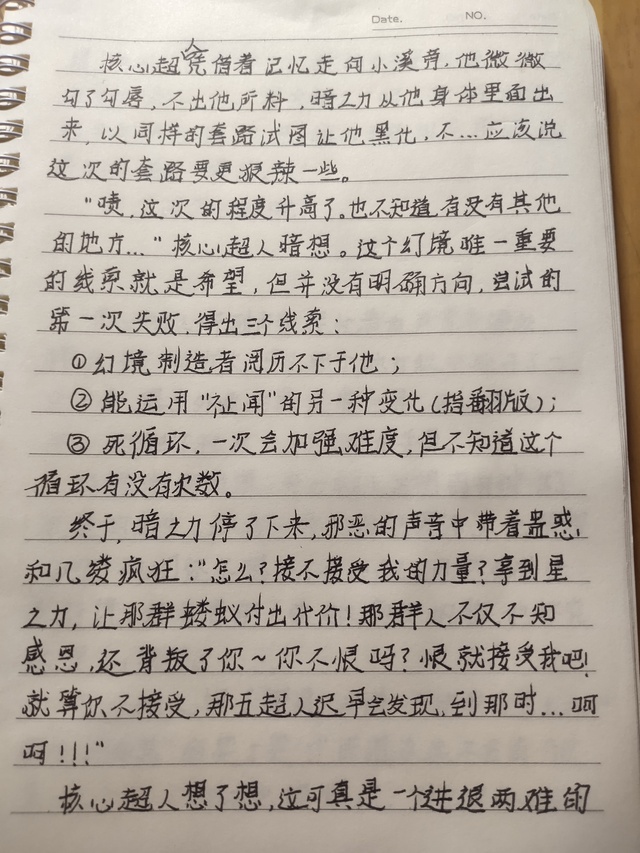 Date.
NO.
核心超人凭借着记忆走向小溪旁，他微微
勾了勾唇，不出他所料，暗之力从他身体里面出
来，以同样的套路试图让他黑化，不…应该说
这次的套路要更狠辣一些。
“啧，这次的程度升高了。也不知道有没有其他
的地方…”核心超人暗想。这个幻境唯一重要
的线索就是希望，但并没有明确方向，尝试的
第一次失败，得出三个线索：
①幻境制造者阅历不下于他；
②能运用“耻闻”的另一种变化（指翻版）；
③死循环，一次会加强难度，但不知道这个
循环有没有次数。
终于，暗之力停了下来，邪恶的声音中带着蛊惑
和几缕疯狂：“怎么？接不接受我的力量？拿到星
之力，让那群蝼蚁付出代价！那群人不仅不知
感恩，还背叛了你～你不恨吗？恨就接受我吧！
就算你不接受，那五超人迟早会发现，到那时…呵
呵！！！”
核心超人想了想，这可真是一个进退两难的